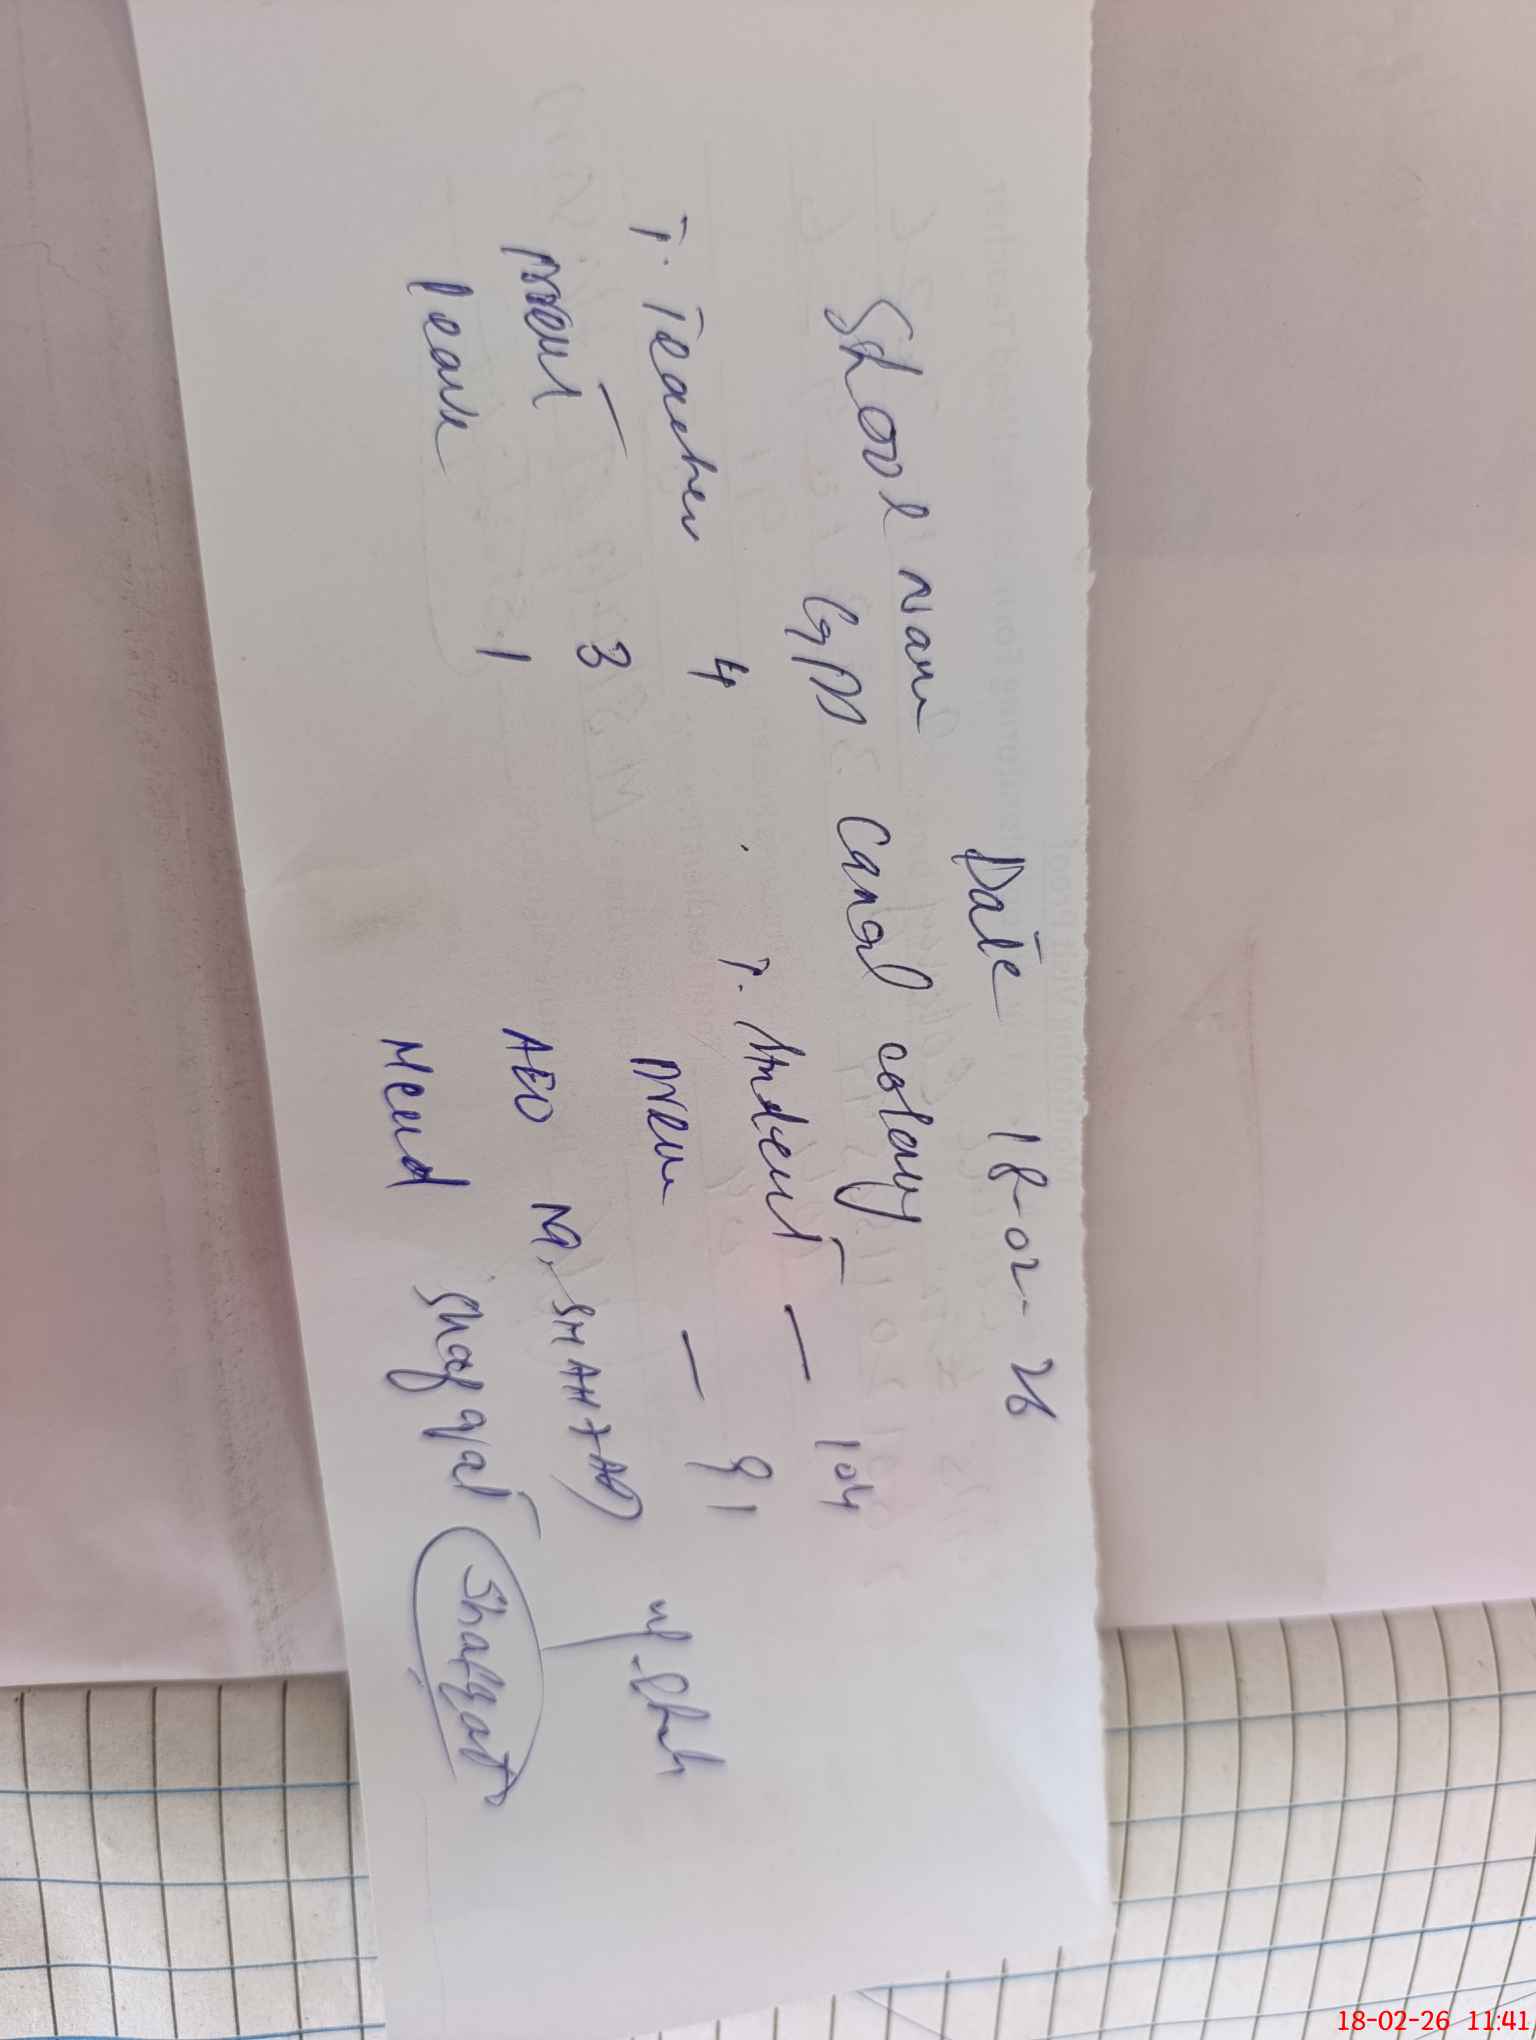 Date 18-02-26
School Name
GPS Canal colony
T. Teacher 4
T. Student — 104
Present 3
Present — 91
Leave 1
AEO M. SHAHZAD
Meend Shafqat
Shafqat
18-02-26 11:41